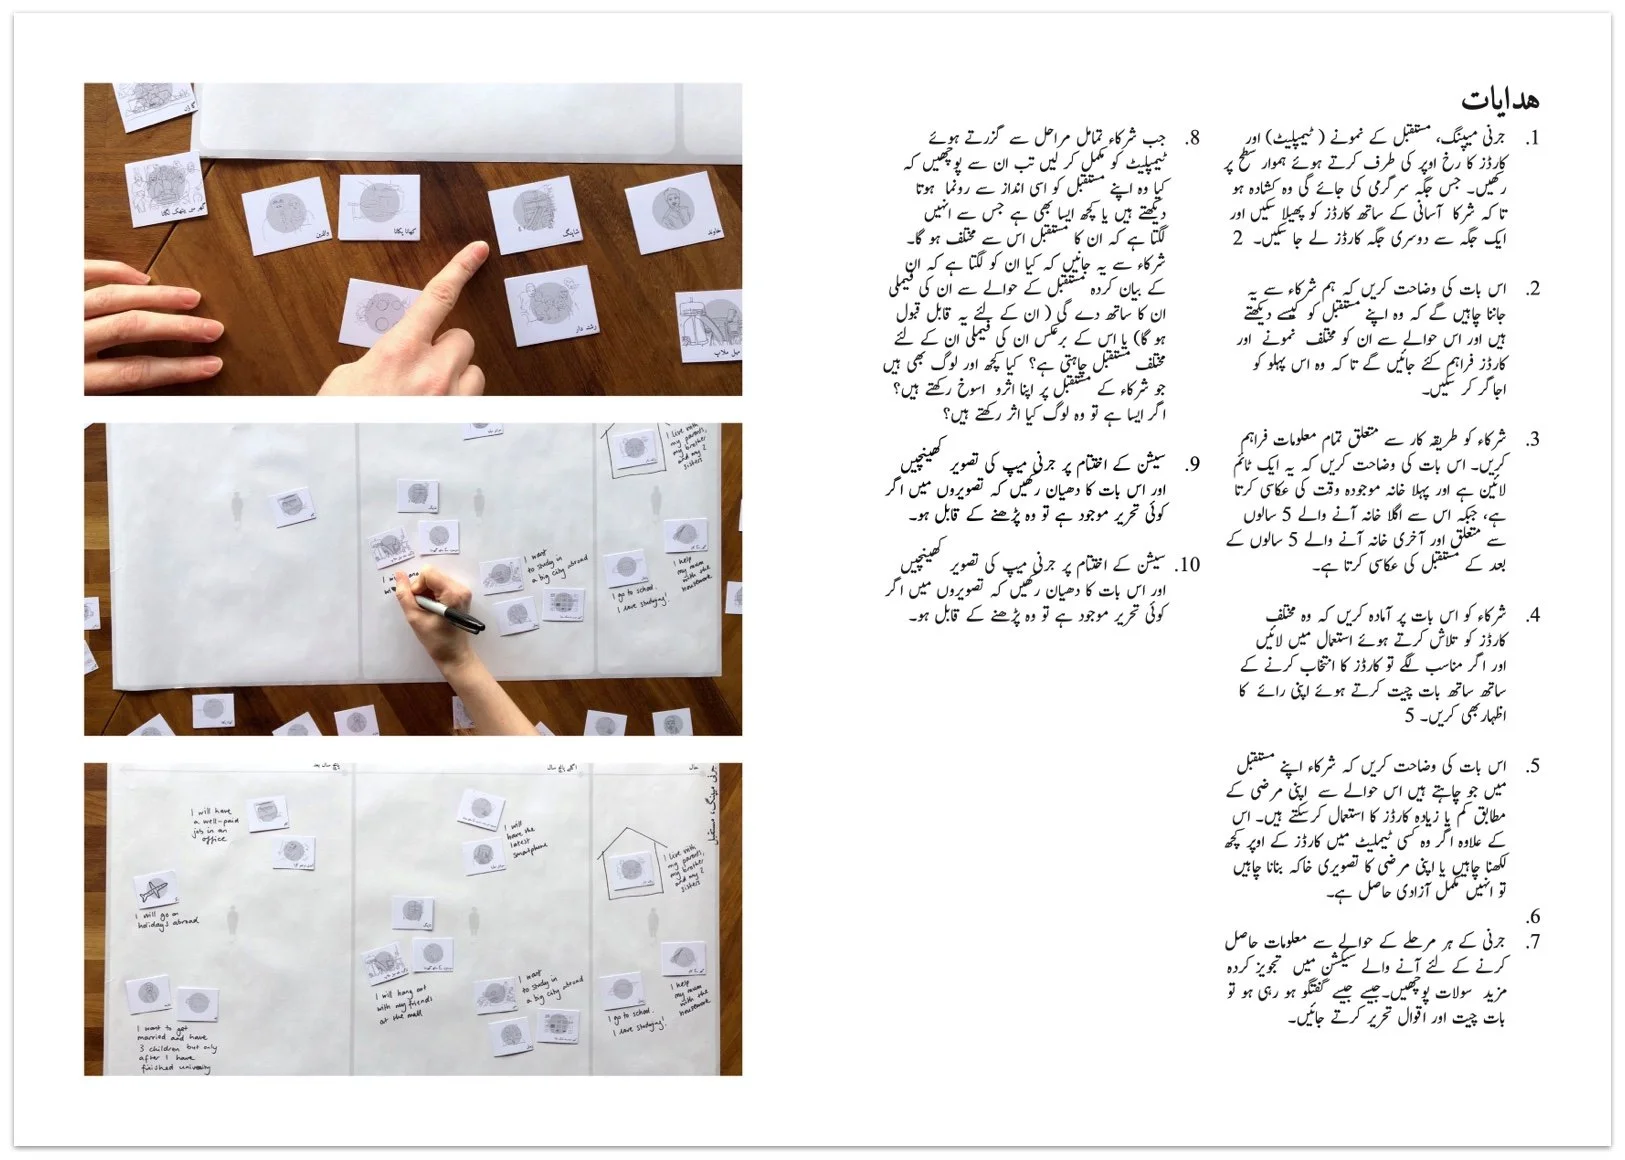 هدایات
1. جرنی میپنگ، مستقبل کے نمونے ( ٹیمپلیٹ) اور
کارڈز کا رخ اوپر کی طرف کرتے ہوئے ہموار سطح پر
رکھیں۔ جس جگہ سرگرمی کی جائے گی وہ کشادہ ہو
تا کہ شرکا آسانی کے ساتھ کارڈز کو پھیلا سکیں اور
ایک جگہ سے دوسری جگہ کارڈز لے جا سکیں۔ 2
2. اس بات کی وضاحت کریں کہ ہم شرکاء سے یہ
جاننا چاہیں گے کہ وہ اپنے مستقبل کو کیسے دیکھتے
ہیں اور اس حوالے سے ان کو مختلف نمونے اور
کارڈز فراہم کئے جائیں گے تا کہ وہ اس پہلو کو
اجاگر کر سکیں۔
3. شرکاء کو طریقہ کار سے متعلق تمام معلومات فراہم
کریں۔ اس بات کی وضاحت کریں کہ یہ ایک ٹائم
لائین ہے اور پہلا خانہ موجودہ وقت کی عکاسی کرتا
ہے، جبکہ اس سے اگلا خانہ آنے والے 5 سالوں
سے متعلق اور آخری خانہ آنے والے 5 سالوں کے
بعد کے مستقبل کی عکاسی کرتا ہے۔
4. شرکاء کو اس بات پر آمادہ کریں کہ وہ مختلف
کارڈز کو تلاش کرتے ہوئے استعمال میں لائیں
اور اگر مناسب لگے تو کارڈز کا انتخاب کرنے کے
ساتھ ساتھ بات چیت کرتے ہوئے اپنی رائے کا
اظہاربھی کریں۔ 5
5. اس بات کی وضاحت کریں کہ شرکاء اپنے مستقبل
میں جو چاہتے ہیں اس حوالے سے اپنی مرضی کے
مطابق کم یا زیادہ کارڈز کا استعمال کرسکتے ہیں۔ اس
کے علاوہ اگر وہ کسی ٹیمپلیٹ میں کارڈز کے اوپر کچھ
لکھنا چاہیں یا اپنی مرضی کا تصویری خاکہ بنانا چاہیں
تو انہیں مکمل آزادی حاصل ہے۔
6.
7. جرنی کے ہر مرحلے کے حوالے سے معلومات حاصل
کرنے کے لئے آنے والے سیکشن میں تجویز کردہ
مزید سولات پوچھیں۔جیسے جیسے گفتگو ہو رہی ہو تو
بات چیت اور اقوال تحریر کرتے جائیں۔
8. جب شرکاء تمامل مراحل سے گزرتے ہوئے
ٹیمپلیٹ کو مکمل کر لیں تب ان سے پوچھیں کہ
کیا وہ اپنے مستقبل کو اسی انداز سے رونما ہوتا
دیکھتے ہیں یا کچھ ایسا بھی ہے جس سے انہیں
لگتا ہے کہ ان کا مستقبل اس سے مختلف ہو گا۔
شرکاء سے یہ جانیں کہ کیا ان کو لگتا ہے کہ ان
کے بیان کردہ مستقبل کے حوالے سے ان کی فیملی
ان کا ساتھ دے گی ( ان کے لئے یہ قابل قبول
ہو گا) یا اس کے برعکس ان کی فیملی ان کے لئے
مختلف مستقبل چاہتی ہے؟ کیا کچھ اور لوگ بھی ہیں
جو شرکاء کے مستقبل پر اپنا اثرو اسوخ رکھتے ہیں؟
اگر ایسا ہے تو وہ لوگ کیا اثر رکھتے ہیں؟
9. سیشن کے اختتام پر جرنی میپ کی تصویر کھینچیں
اور اس بات کا دھیان رکھیں کہ تصویروں میں اگر
کوئی تحریر موجود ہے تو وہ پڑھنے کے قابل ہو۔
10. سیشن کے اختتام پر جرنی میپ کی تصویر کھینچیں
اور اس بات کا دھیان رکھیں کہ تصویروں میں اگر
کوئی تحریر موجود ہے تو وہ پڑھنے کے قابل ہو۔
والدین
کھانا پکانا
شاپنگ
خاوند
رشتہ دار
میل ملاپ
I live with
my parents,
my brother
and my 2
sisters
I want
to study in
a big city abroad
I go to school.
I love studying!
I help
my mum
with the
housework
حال
جرنی میپنگ، مستقبل
I will have
a well-paid
job in an
office
I will
have the
latest
smartphone
I live with
my parents,
my brother
and my 2
sisters
I will go on
holidays abroad
I will hang out
with my friends
at the mall
I want
to study in
a big city abroad
I go to school.
I love studying!
I help
my mum
with the
housework
I want to get
married and have
3 children but only
after I have
finished university